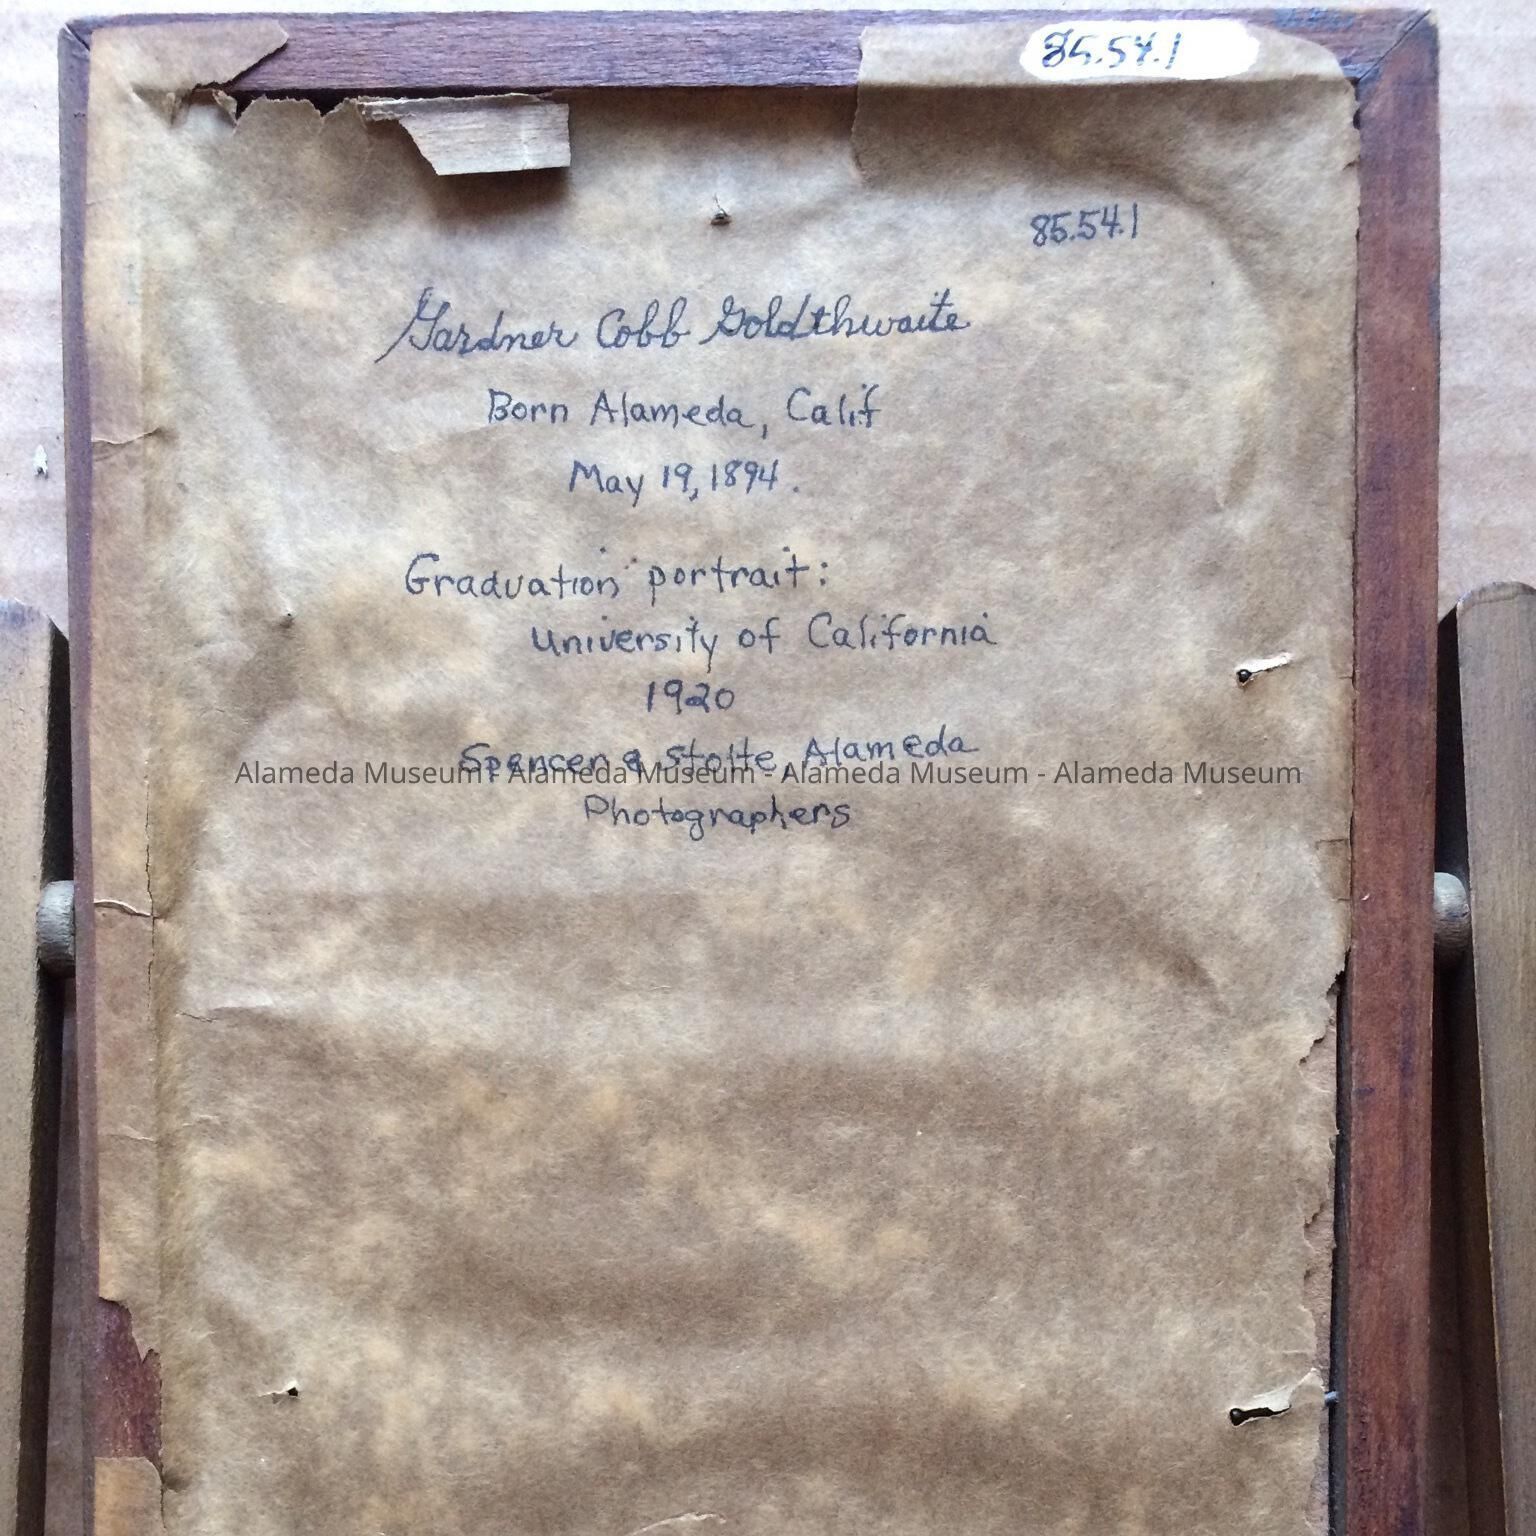 85.54.1
85.54.1
Gardner Cobb Goldthwaite
Born Alameda, Calif
May 19, 1894.
Graduation portrait:
University of California
1920
Spencer & Stolte, Alameda
Alameda Museum - Alameda Museum - Alameda Museum - Alameda Museum
Photographers